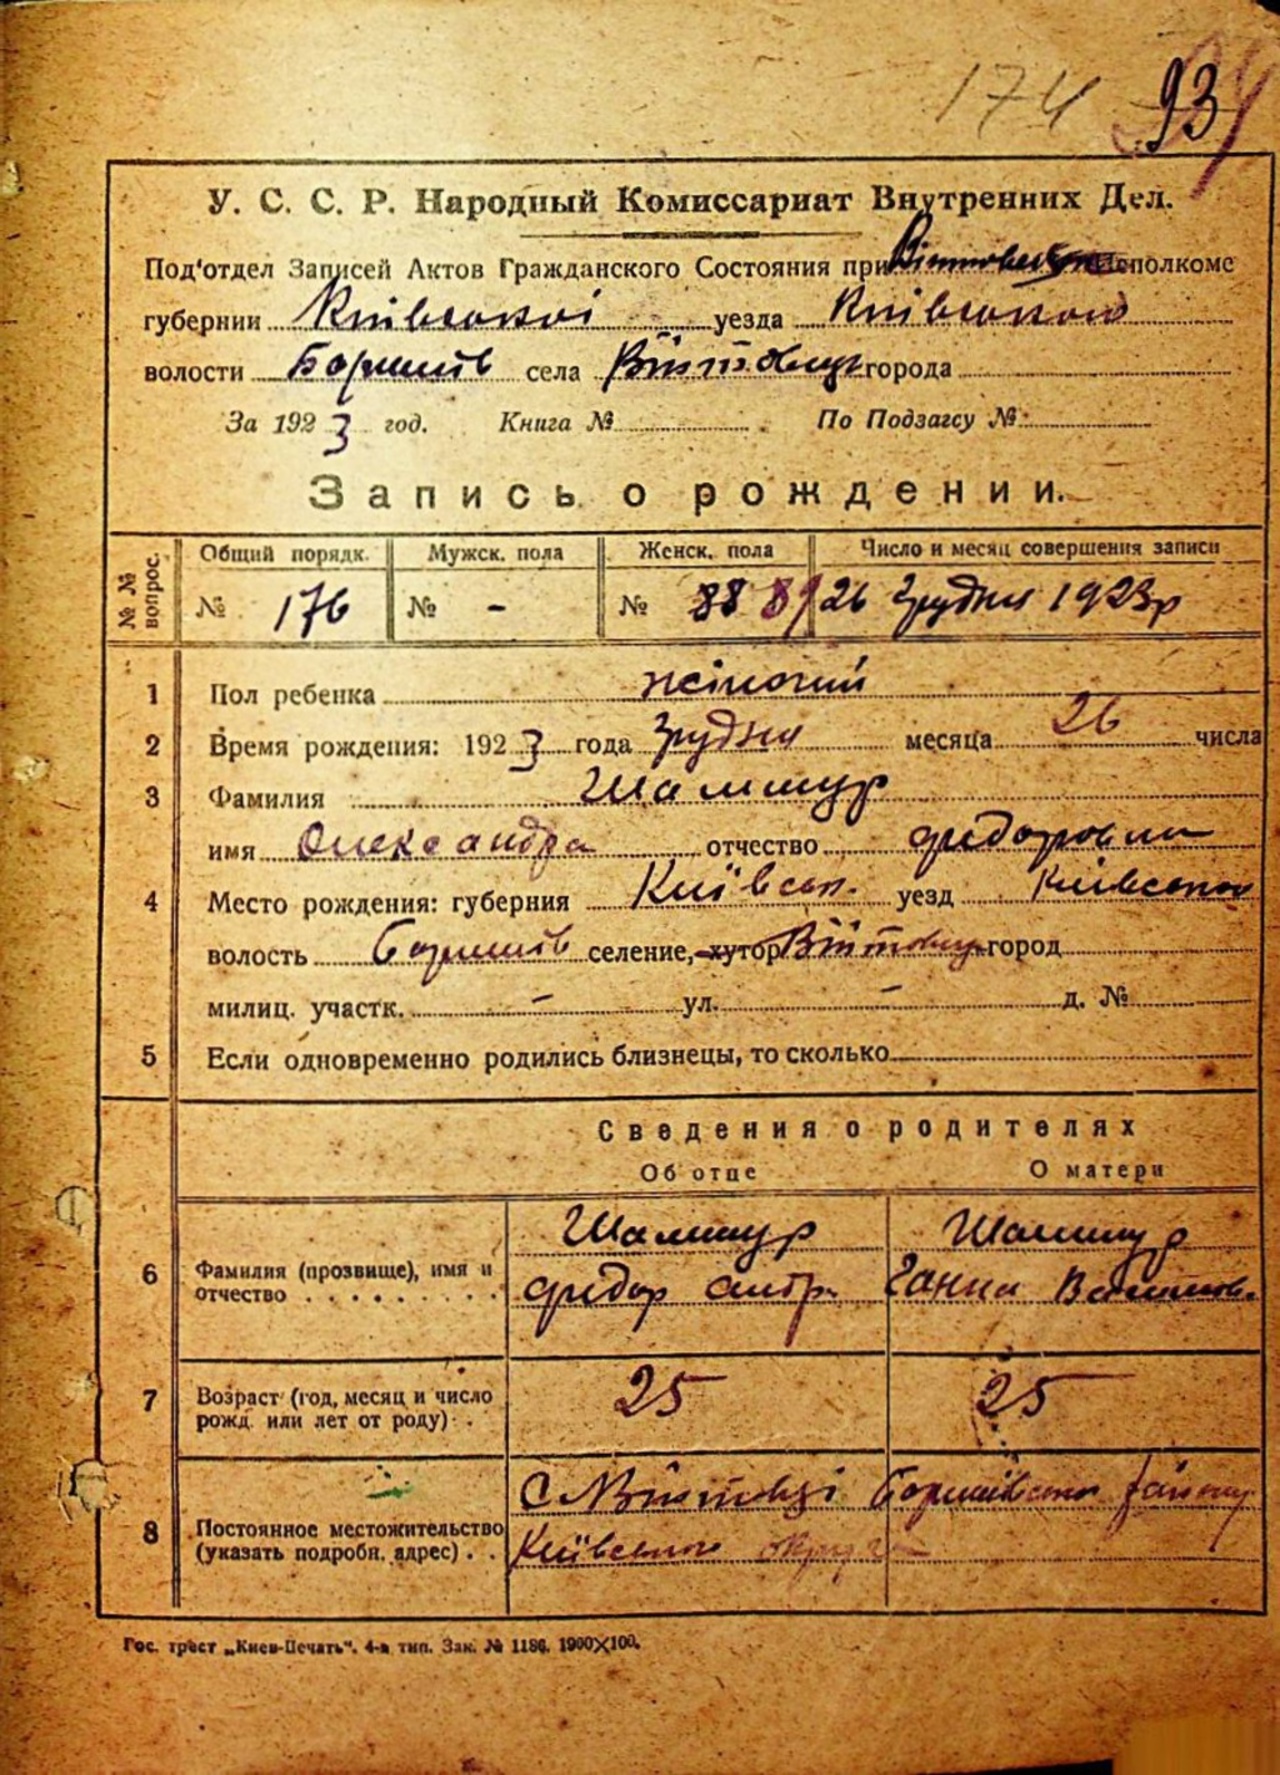 174 93
У. С. С. Р. Народный Комиссариат Внутренних Дел.
Под'отдел Записей Актов Гражданского Состояния при Исполкоме
губернии Київської уезда Київського
волости Баришів села Війтовці города
За 1923 год. Книга № По Подзагсу №
Запись о рождении.
№№ вопрос. Общий порядк. Мужск. пола Женск. пола Число и месяц совершения записи
№ 176 № - № 88 89 26 грудня 1923 р
1 Пол ребенка жіночий
2 Время рождения: 1923 года грудня месяца 26 числа
3 Фамилия Шамшур
имя Олександра отчество Федоровна
4 Место рождения: губерния Київськ. уезд Київського
волость Баришів селение, хутор Війтовці город
милиц. участк. - ул. - д. №
5 Если одновременно родились близнецы, то сколько
Сведения о родителях
Об отце О матери
Шамшур Шамшур
6 Фамилия (прозвище), имя и отчество Федор Ганна
7 Возраст (год, месяц и число рожд. или лет от роду) 25 25
8 Постоянное местожительство (указать подробн. адрес) С Війтовці Баришівськ району
Київського округа
Гос. трест „Киев-Печать". 4-я тип. Зак. № 1186. 1900×100.